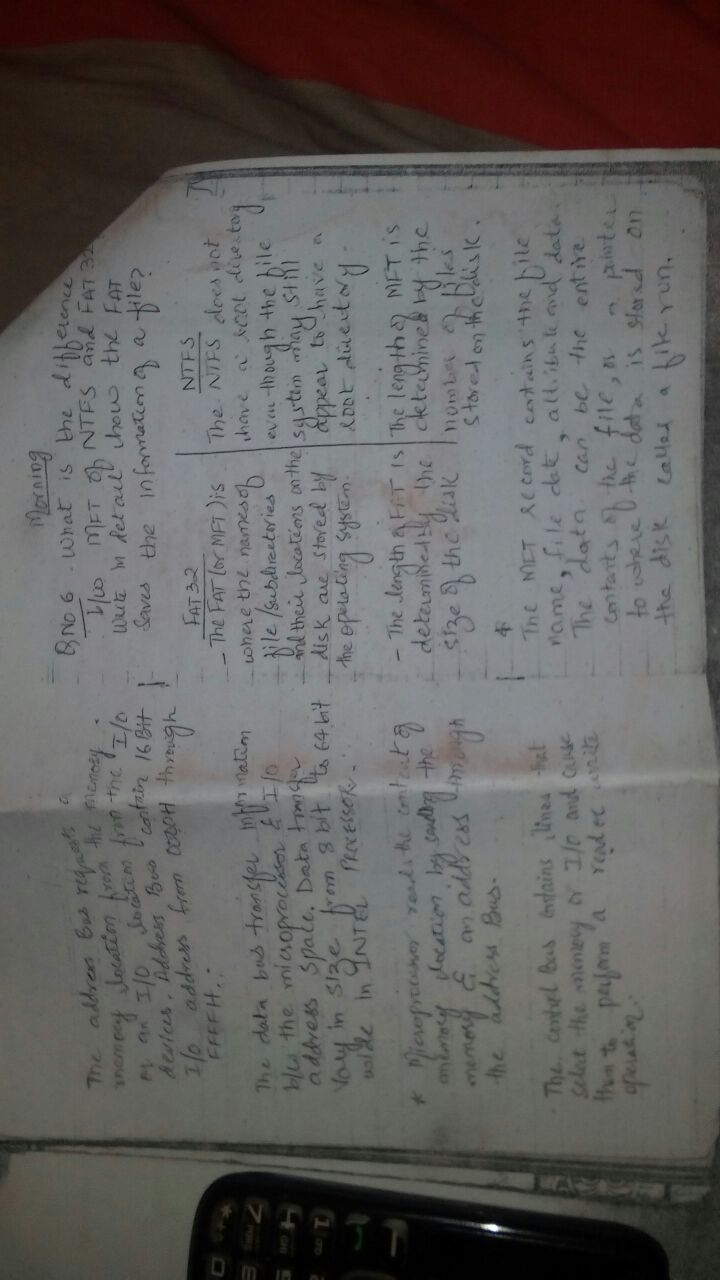 The address Bus requests a
memory location from the memory.
or an I/O location from the I/O
devices. Address Bus contain 16 Bit
I/O address from 0000H through
FFFFH.:
The data bus transfer Information
b/w the microprocessor & I/O
address space. Data transfer
Vary in size from 8 bit to 64 bit
wide in INTEL PROCESSOR.
* Microprocessor reads the content of
memory location by sending the
memory & an address through
the address Bus.
- The control Bus contains lines that
select the memory or I/O and cause
them to perform a read or write
operation.
Morning
Q No 6. What is the difference
b/w MFT of NTFS and FAT 32
Write in detail how the FAT
Saves the information of a file?
FAT 32
- The FAT (or MFT) is
where the names of
file/subdirectories
and their locations on the
disk are stored by
the operating system.
- The length of FAT is
determined by the
size of the disk
NTFS
The NTFS does not
have a root directory
even though the file
system may still
appear to have a
root directory.
The length of MFT is
determined by the
number of files
stored on the disk.
The MFT record contains the file
name, file date, attribute and data.
The data can be the entire
contents of the file, or a pointer
to where the data is stored on
the disk called a file run.
*
7
PQRS
4
GHI
1
0